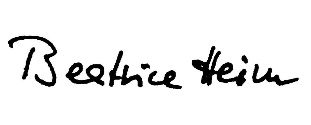 Beatrice Heim